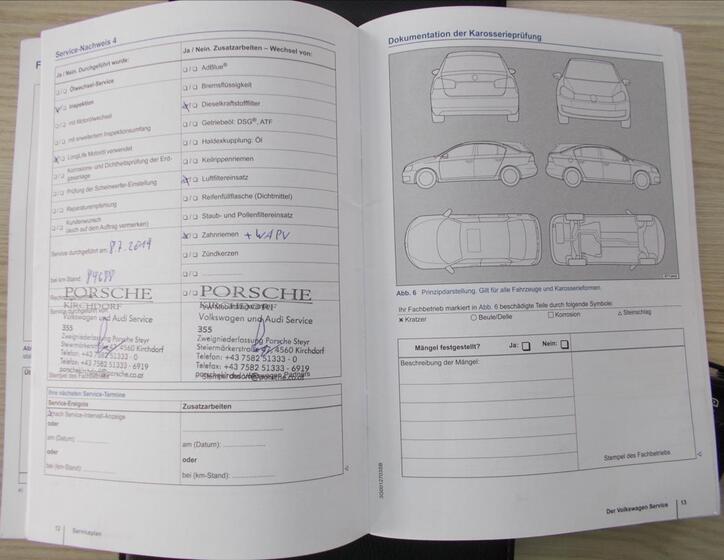 Service-Nachweis 4
Ja / Nein. Durchgeführt wurde:
Ölwechsel-Service
Inspektion
mit Motorölwechsel
mit erweitertem Inspektionsumfang
LongLife Motoröl verwendet
Korrosions- und Dichtheitsprüfung der Erd-
gasanlage
Prüfung der Scheinwerfer-Einstellung
Reparaturempfehlung
Kundenwunsch
(auch auf dem Auftrag vermerken)
Service durchgeführt am: 8.7.2019
bei km-Stand:
PORSCHE
KIRCHDORF
Volkswagen und Audi Service
355
Zweigniederlassung Porsche Steyr
4560 Kirchdorf
Telefon: +43 7582 51333 - 0
+43 7582 51333 - 6919
Stempel des Fachbetriebs
Ja / Nein. Zusatzarbeiten – Wechsel von:
AdBlue®
Bremsflüssigkeit
Dieselkraftstofffilter
Getriebeöl: DSG®, ATF
Haldexkupplung: Öl
Keilrippenriemen
Luftfiltereinsatz
Reifenfüllflasche (Dichtmittel)
Staub- und Pollenfiltereinsatz
Zahnriemen + WAPU
Zündkerzen
PORSCHE
KIRCHDORF
Volkswagen und Audi Service
355
Zweigniederlassung Porsche Steyr
4560 Kirchdorf
Telefon: +43 7582 51333 - 0
Telefax: +43 7582 51333 - 6919
Ihre nächsten Service-Termine
Service-Ereignis
nach Service-Intervall-Anzeige
oder
am (Datum):
oder
bei (km-Stand):
Zusatzarbeiten
am (Datum):
oder
bei (km-Stand):
12 Serviceplan
Dokumentation der Karosserieprüfung
Abb. 6 Prinzipdarstellung. Gilt für alle Fahrzeuge und Karosserieformen.
Ihr Fachbetrieb markiert in Abb. 6 beschädigte Teile durch folgende Symbole:
× Kratzer ○ Beule/Delle □ Korrosion △ Steinschlag
Mängel festgestellt? Ja: Nein:
Beschreibung der Mängel:
Stempel des Fachbetriebs
Der Volkswagen Service 13